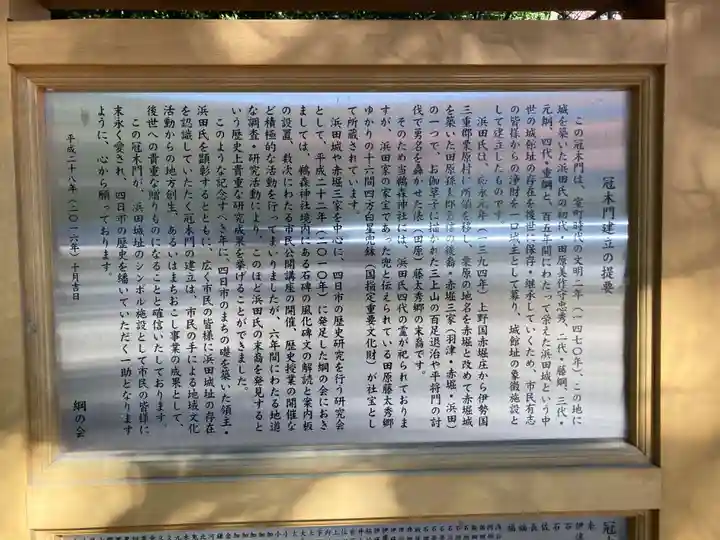 冠木門建立の提要
この冠木門は、室町時代の文明二年（一四七〇年）、この地に
城を築いた浜田氏の初代・田原美作守忠秀、二代・藤綱、三代・
元綱、四代・重綱と、百五年間にわたって栄えた浜田城という中
世の城館址の存在を後世に保存・継承していくため、市民有志
の皆様からの浄財を一口城主として募り、城館址の象徴施設と
して建立したものです。
浜田氏は、応永元年（一三九四年）、上野国赤堀庄から伊勢国
三重郡栗原村に所領を移し、栗原の地名を赤堀と改めて赤堀城
を築いた田原孫太郎景信の後裔・赤堀三家（羽津・赤堀・浜田）
の一つで、お伽草子に描かれた三上山の百足退治や平将門の討
伐で勇名を轟かせた俵（田原）藤太秀郷の末裔です。
そのため当鵜森神社には、浜田氏四代の霊が祀られておりま
すが、浜田家の家宝であった兜と伝えられている田原藤太秀郷
ゆかりの十六間四方白星兜鉢（国指定重要文化財）が社宝とし
て所蔵されています。
浜田城や赤堀三家を中心に、四日市の歴史研究を行う研究会
として、平成二十二年（二〇一〇年）に発足した綱の会におき
ましては、鵜森神社境内にある石碑の風化碑文の解読と案内板
の設置、数次にわたる市民公開講座の開催、歴史授業の開催な
ど積極的な活動を行ってまいりましたが、六年間にわたる地道
な調査・研究活動により、このほど浜田氏の末裔を発見すると
いう歴史上貴重な研究成果を挙げることができました。
このような記念すべき年に、四日市のまちの礎を築いた領主・
浜田氏を顕彰するとともに、広く市民の皆様に浜田城址の存在
を認識していただく冠木門の建立は、市民の手による地域文化
活動からの地方創生、あるいはまちおこし事業の成果として、
後世への貴重な贈りものになることと確信いたしております。
この冠木門が、浜田城址のシンボル施設として市民の皆様に
末永く愛され、四日市の歴史を繙いていただく一助となります
ように、心から願っております。
平成二十八年（二〇一六年）十月吉日
綱の会
冠木